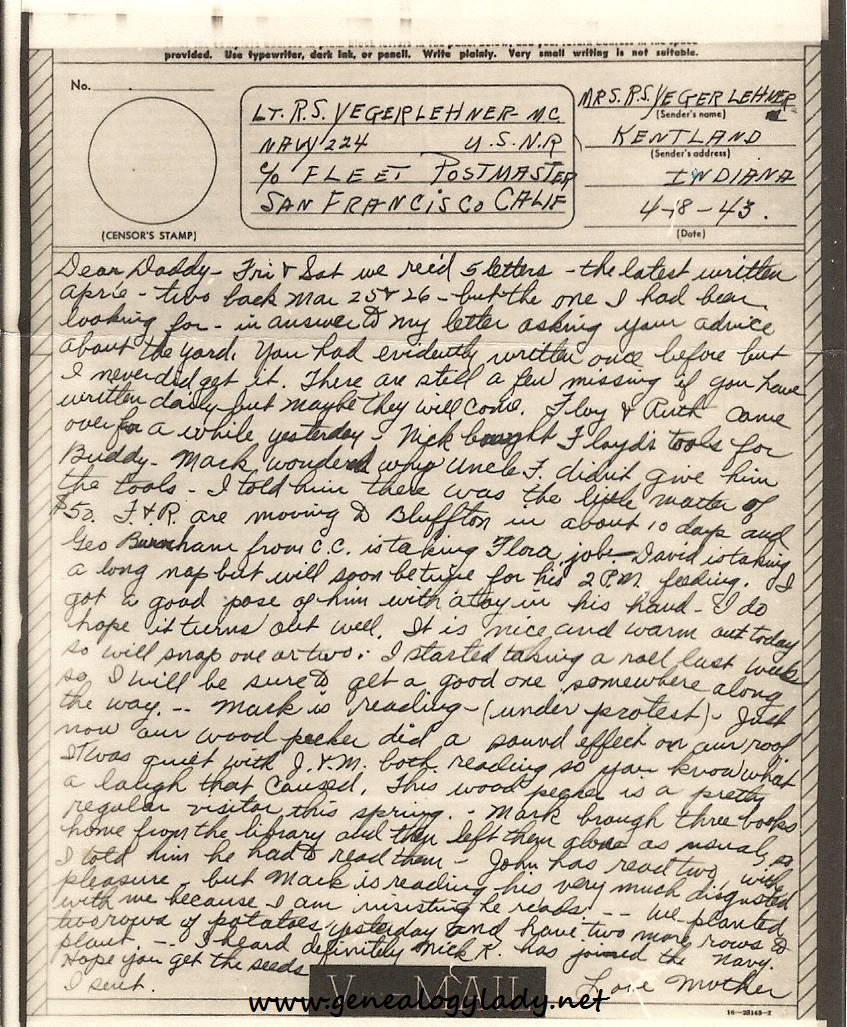 provided. Use typewriter, dark ink, or pencil. Write plainly. Very small writing is not suitable.
No.
(CENSOR'S STAMP)
LT. R.S. YEGERLEHNER- MC
NAVY 224 U.S.N.R
c/o FLEET POSTMASTER
SAN FRANCISCO CALIF
MRS. R.S. YEGERLEHNER
(Sender's name)
KENTLAND
(Sender's address)
INDIANA
4-18-43.
(Date)
Dear Daddy- Fri & Sat we rec'd 5 letters - the latest written
- two back Mar 25 & 26 - but the one I had been
looking for - in answer to my letter asking your advice
about the yard. You had evidently written once before but
I never did get it. There are still a few missing if you have
written daily but maybe they will come. Floy & Ruth came
over for a while yesterday - Nick bought Floyd's tools for
Buddy - Mark wondered why Uncle F. didn't give him
the tools - I told him there was the little matter of
$50. F. & R. are moving to Bluffton in about 10 days and
Geo Burnham from C.C. is taking Flora job - David is taking
a long nap but will soon be time for his 2 P.M. feeding. I
got a good pose of him with a toy in his hand - I do
hope it turns out well. It is nice and warm out today
so will snap one or two. I started taking a roll last week
so I will be sure to get a good one somewhere along
the way. -- Mark is reading - (under protest) - Just
now our wood pecker did a sound effect on our roof.
It was quiet with J. & M. both reading so you know what
a laugh that caused. This wood pecker is a pretty
regular visitor this spring. - Mark brough three books
home from the library and then left them alone as usual, so
I told him he had to read them - John has read two with
pleasure, but Mark is reading his very much disgusted
with me because I am insisting he reads. -- We planted
two rows of potatoes yesterday and have two more rows to
plant. -- I heard definitely Nick K. has joined the Navy.
Hope you get the seeds
I sent. Love Mother
V - MAIL
www.genealogylady.net
16-28143-2